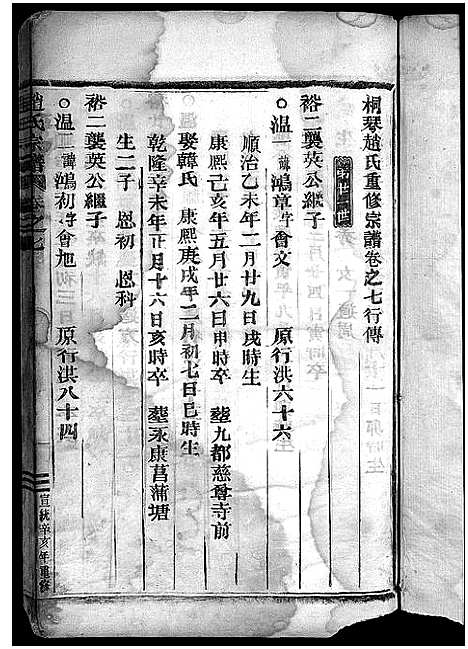 桐琴趙氏重修宗譜卷之七行傳
裕二襲英公繼子
溫一 諱鴻章字會文 原行洪六十六
順治乙未年二月廿九日戌時生
康熙己亥年五月廿六日申時卒 塟九都慈尊寺前
娶韓氏 康熙庚戌年二月初七日巳時生
乾隆辛未年正月十六日亥時卒 塟永康菖蒲塘
生二子 恩初 恩科
裕二襲英公繼子
溫二 諱鴻初字會旭 原行洪八十四
趙氏宗譜 卷之七
宣統辛亥年重修